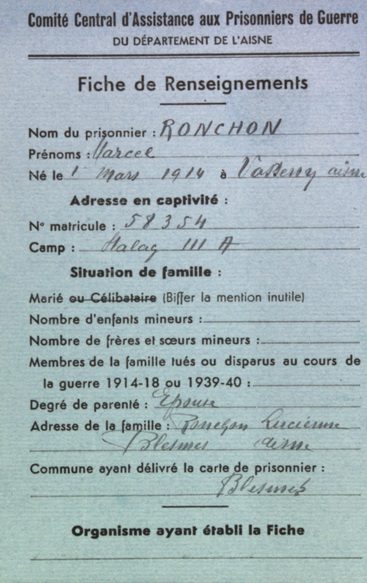 Comité Central d'Assistance aux Prisonniers de Guerre
DU DÉPARTEMENT DE L'AISNE
Fiche de Renseignements
Nom du prisonnier : RONCHON
Prénoms : Marcel
Né le 1 Mars 1914 à Vasseny aisne
Adresse en captivité :
N° matricule : 58354
Camp : Stalag III A
Situation de famille :
Marié ou Célibataire (Biffer la mention inutile)
Nombre d'enfants mineurs :
Nombre de frères et sœurs mineurs :
Membres de la famille tués ou disparus au cours de
la guerre 1914-18 ou 1939-40 :
Degré de parenté : Epouse
Adresse de la famille : Ronchon Lucienne
Blesmes aisne
Commune ayant délivré la carte de prisonnier :
Blesmes
Organisme ayant établi la Fiche